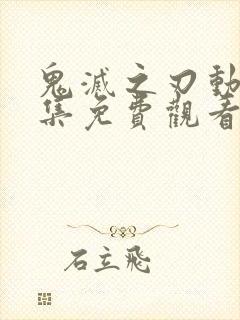 鬼滅之刃動
集免費觀看
石立飛